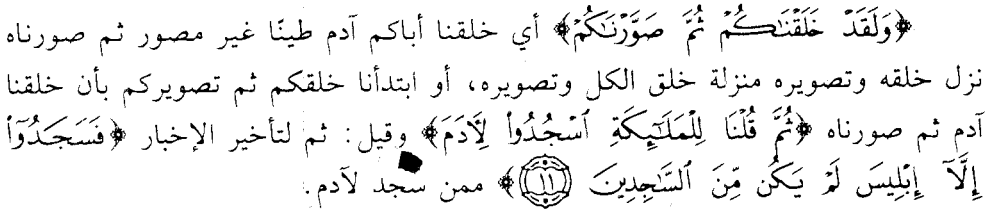 ﴿وَلَقَدْ خَلَقْنَٰكُمْ ثُمَّ صَوَّرْنَٰكُمْ﴾ أي خلقنا أباكم آدم طينًا غير مصور ثم صورناه
نزل خلقه وتصويره منزلة خلق الكل وتصويره، أو ابتدأنا خلقكم ثم تصويركم بأن خلقنا
آدم ثم صورناه ﴿ثُمَّ قُلْنَا لِلْمَلَٰٓئِكَةِ ٱسْجُدُوا۟ لِأَدَمَ﴾ وقيل: ثم لتأخير الإخبار ﴿فَسَجَدُوٓا۟
إِلَّآ إِبْلِيسَ لَمْ يَكُن مِّنَ ٱلسَّٰجِدِينَ ۝١١﴾ ممن سجد لآدم.